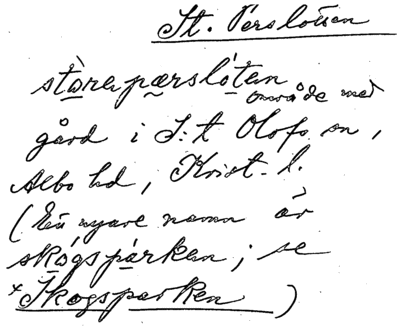 St. Perslotten
stòrapærslótən område med
gård i S:t Olofs sn,
Albo hd, Krist. l.
(En nyare namn är
skógspárken; se
× Skogsparken)